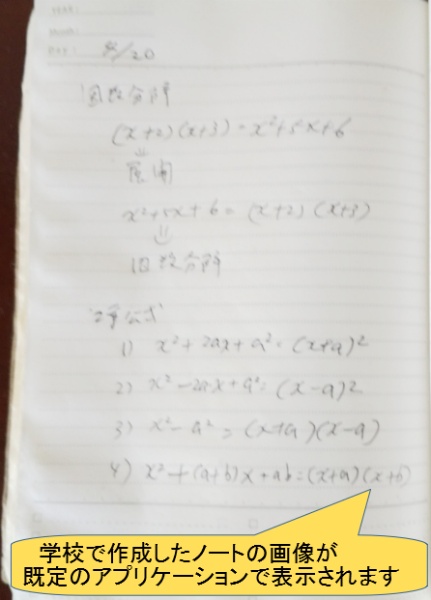 8/20
因数分解
(x+2)(x+3)=x²+5x+6
⇓
展開
x²+5x+6=(x+2)(x+3)
⇓
因数分解
公式
1) x²+2ax+a²=(x+a)²
2) x²-2ax+a²=(x-a)²
3) x²-a²=(x+a)(x-a)
4) x²+(a+b)x+ab=(x+a)(x+b)
学校で作成したノートの画像が
既定のアプリケーションで表示されます